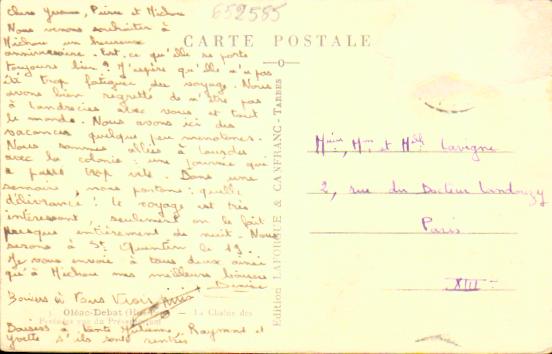 652585
CARTE POSTALE
Chers Yvonne, Pierre et Michou
Nous venons souhaiter à
Michou un heureux
anniversaire. Est-ce qu'elle se porte
toujours bien ? J'espère qu'elle n'a pas
été trop fatiguée du voyage. Nous
avons bien regretté de n'être pas
à Landrecies avec vous et tout
le monde. Nous avons ici des
vacances quelque peu monotones.
Nous sommes allées à Lourdes
avec la colonie : une journée qui
a passé trop vite. Dans une
semaine, nous partons : quelle
délivrance ! le voyage est très
intéressant, seulement on le fait
presque entièrement de nuit. Nous
serons à St Quentin le 13.
Je vous envoie à tous deux ainsi
qu'à Michou mes meilleurs baisers
Denise
Baisers à tous trois
Oléac-Debat — La Chaîne des
Pyrénées vue du
Baisers à tante Julienne, Raymond et
Yvette s'ils sont rentrés
Edition LAFORGUE & CANFRANC - TARBES
Mr, Mme et Melle Lavigne
2, rue du Docteur Landouzy
Paris
XIII